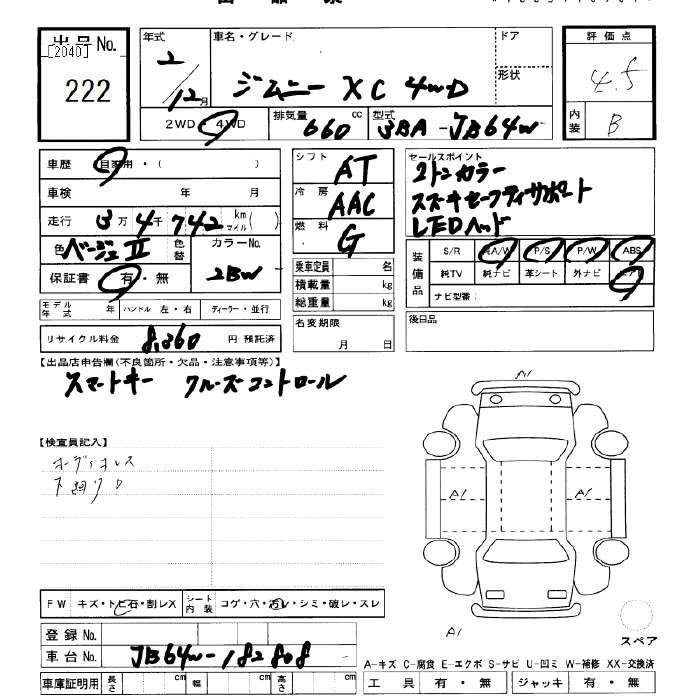 出品No.
[2040]
222
年式
2/12月
車名・グレード
ジムニー XC 4WD
ドア
形状
評価点
4.5
内装
B
2WD・4WD
排気量 660 cc
型式 3BA-JB64W
車歴 自家用・( )
車検 年 月
走行 3万4千742 km マイル ( )
色 ベージュII 色替
カラーNo. 2BW
保証書 有・無
シフト AT
冷房 AAC
燃料 G
乗車定員 名
積載量 kg
総重量 kg
名変期限 月 日
セールスポイント
2トンカラー
スズキセーフティサポート
LEDヘッド
装備品
S/R 純A/W P/S P/W ABS
純TV 純ナビ 革シート 外ナビ エアB
ナビ型番:
後日品
モデル年式 年 ハンドル 左・右 ディーラー・並行
リサイクル料金 8,360 円 預託済
【出品店申告欄(不良箇所・欠品・注意事項等)】
スマートキー クルーズコントロール
【検査員記入】
コーディオレス
下廻りP
A1
A1
A1
A1
FW キズ・トビ石・割レX
シート内装 コゲ・穴・汚レ・シミ・破レ・スレ
登録No.
車台No. JB64W-182808
車庫証明用 長さ cm 幅 cm 高さ cm
スペア
A-キズ C-腐食 E-エクボ S-サビ U-凹ミ W-補修 XX-交換済
工具 有・無 ジャッキ 有・無